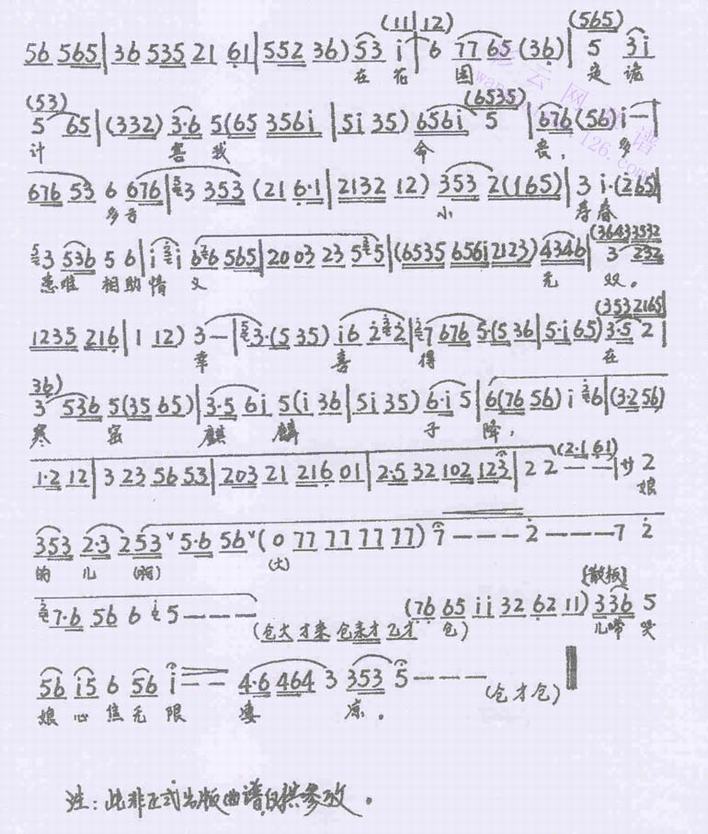 (11|12) (565)
56 565|36 535 21 61|552 36)53 i|6 77 65 (36)|5 3i
在花 园 定 诡
(53) (6535)
5 65|(332) 3·6 5(65 356i|5i 35) 656i 5|676 (56)i—|
计 害我 命 丧, 多
676 53 6 676|3 353 (21 6·1|2132 12) 353 2(165)|3 i·(265|
多言 小 寿春
(36432532
3 536 5 6|i i 6 565|2003 23 5 5|(6535 656i 2123) 4346|3 232
患难 相助情 义 无 双。
(3532165)
1235 216|1 12) 3—|3·(5 35) i6 2 2|7 676 5·(5 36|5·i 65) 3·5 2|
幸 喜 得 在
36)
3 536 5(35 65)|3·5 6i 5(i 36|5i 35) 6·i 5|6(76 56) i 6|(3·2 56)
寒 窑 麒 麟 子 降,
(2·1 61)
1·2 12|3 23 56 53|203 21 216 01|2·5 32 102 123|2 2 — —|サ 2
娘
353 2·3 253 5·6 56 (0 77 77 77 77) 7 — — — 2 — — — 7 2
的 儿 (啊) (大)
[散板]
7·6 56 6 5 — — — — (76 65 ii 32 62 11) 336 5
(仓大 才来 仓来才 乙才 仓) 儿啼 哭
56 i5 6 56 i — — 4·6 464 3 353 5 — — — (仓才仓)
娘 心 焦无 限 凄 凉。
注:此非正式出版曲谱,仅供参考。